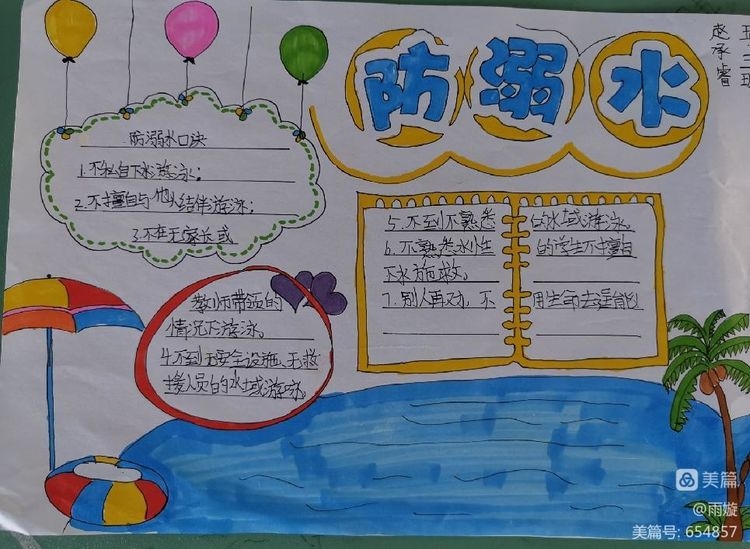 防溺水
赵承睿
五三班
防溺水口诀
1.不私自下水游泳;
2.不擅自与他人结伴游泳;
3.不在无家长或
教师带领的
情况下游泳。
4.不到无安全设施、无救
援人员的水域游泳。
5.不到不熟悉的水域游泳。
6.不熟悉水性的学生不擅自
下水施救。
7.别人再劝,不用生命去逞能
美篇
@雨璇
美篇号: 654857